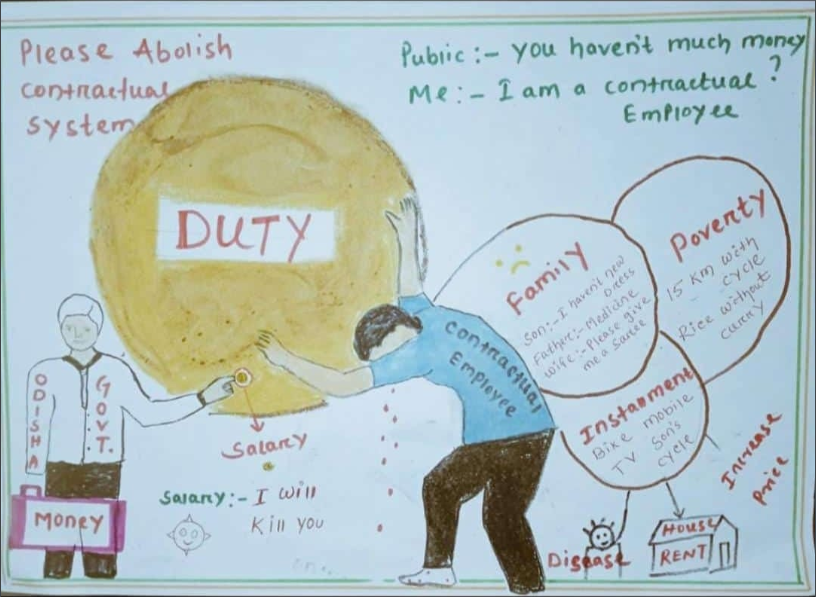 Please Abolish
contractual
system
Public:- you haven't much money
?
Me:- I am a contractual
Employee
DUTY
ODISHA
GOVT.
Money
Salary
Salary:- I will
Kill you
contractual
Employee
Family
Son:- I haven't new
Dress
Father:- Medicine
Wife:- Please give
me a Saree
Poverty
15 Km with
cycle
Rice without
curry
Instamment
Bike mobile
TV Son's
cycle
Increase
Price
Disease
HOUSE
RENT